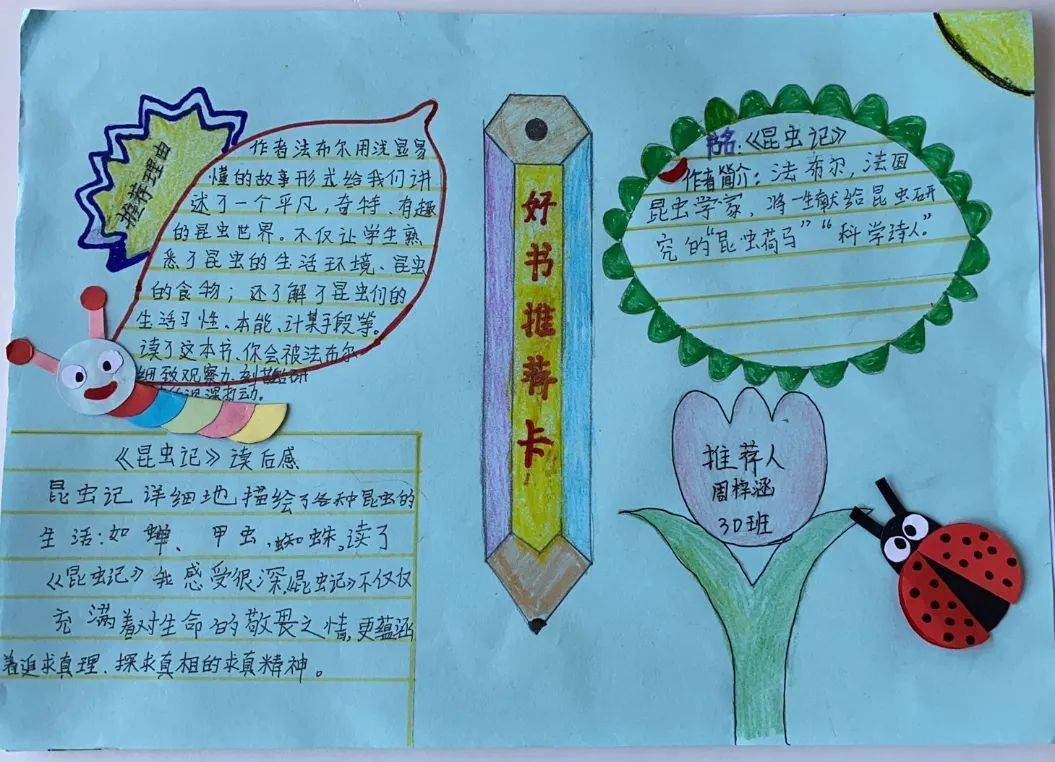 推荐理由
作者法布尔用浅显易
懂的故事形式给我们讲
述了一个平凡,奇特、有趣
的昆虫世界。不仅让学生熟
悉了昆虫的生活环境、昆虫
的食物;还了解了昆虫们的
生活习性、本能、计某手段等。
读了这本书、你会被法布尔
细致观察
打动。
《昆虫记》读后感
昆虫记 详细地 描绘了各种昆虫的
生活:如 蝉、甲虫,蜘蛛。读了
《昆虫记》我 感受很深,《昆虫记》不仅仅
充满着对生命的敬畏之情,更蕴涵
着追求真理、探求真相的求真精神。
好书推荐卡
书名:《昆虫记》
作者简介:法布尔,法国
昆虫学家、将一生献给昆虫研
究的“昆虫荷马”“科学诗人”
推荐人
周梓涵
3D班